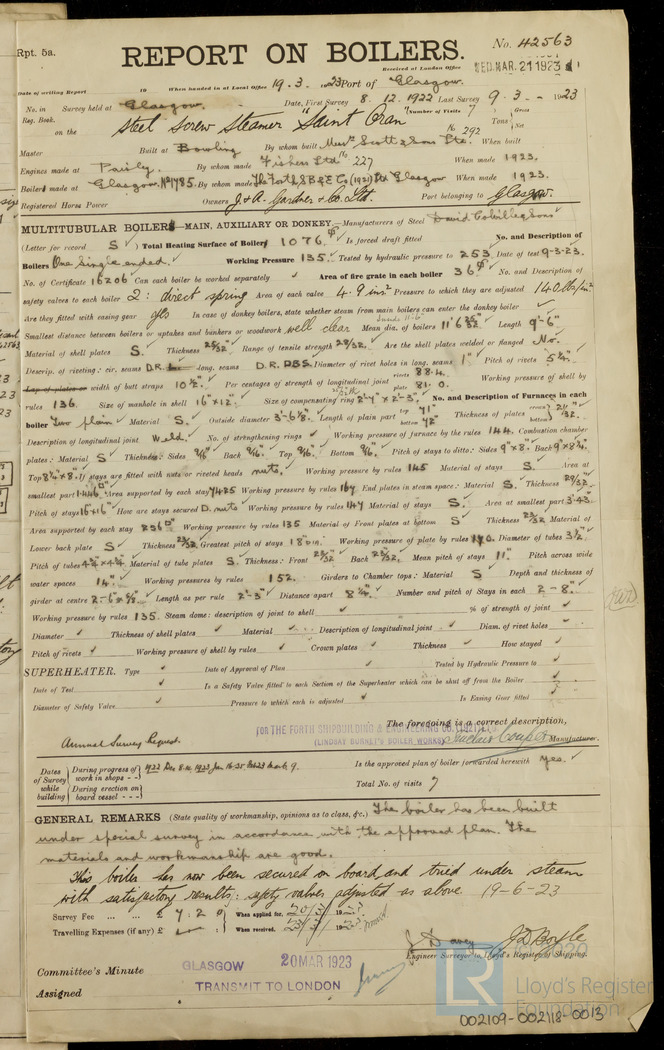 Rpt. 5a.
REPORT ON BOILERS.
No. 42563
Received at London Office WED. MAR. 21 1923
Date of writing Report 19 When handed in at Local Office 19.3.1923 Port of Glasgow
No. in Reg. Book. Survey held at Glasgow. Date, First Survey 8.12.1922 Last Survey 9.3.1923
on the Steel Screw Steamer "Saint Oran" (Number of Visits 7 Gross Tons Net
Master Built at Bowling By whom built Messrs Scott & Sons Ltd. No 292 When built
Engines made at Paisley. By whom made Fishers Ltd No 227 When made 1923.
Boilers made at Glasgow. No 1785. By whom made The Forth S B & E Co (1921) Ltd Glasgow When made 1923.
Registered Horse Power Owners J. & A. Gardner & Co. Ltd. Port belonging to Glasgow
MULTITUBULAR BOILERS—MAIN, AUXILIARY OR DONKEY.—Manufacturers of Steel David Colville & Sons
(Letter for record S) Total Heating Surface of Boilers 1076 Is forced draft fitted No. and Description of
Boilers One Single ended. Working Pressure 135. Tested by hydraulic pressure to 253 Date of test 9-3-23.
No. of Certificate 16206 Can each boiler be worked separately Area of fire grate in each boiler 36 No. and Description of
safety valves to each boiler 2: direct spring Area of each valve 4.9 ins² Pressure to which they are adjusted 140 lbs/in²
Are they fitted with easing gear yes In case of donkey boilers, state whether steam from main boilers can enter the donkey boiler
Smallest distance between boilers or uptakes and bunkers or woodwork well clear Mean dia. of boilers 11' 6 25/32" Length 9'-6"
Material of shell plates S. Thickness 25/32" Range of tensile strength 28/32. Are the shell plates welded or flanged No.
Descrip. of riveting: cir. seams D.R. long. seams D.R. DBS. Diameter of rivet holes in long. seams 1" Pitch of rivets 5 1/4"
Lap of plates or width of butt straps 10 1/2". Per centages of strength of longitudinal joint rivets 88.4. plate 81.0. Working pressure of shell by
rules 136. Size of manhole in shell 16" x 12". Size of compensating ring 2'-7" x 2'-3". No. and Description of Furnaces in each
boiler Two plain Material S. Outside diameter 3'-6 1/8". Length of plain part top 71" bottom 72" Thickness of plates crown bottom 21/32"
Description of longitudinal joint Weld. No. of strengthening rings Working pressure of furnace by the rules 144. Combustion chamber
plates: Material S Thickness: Sides 9/16" Back 9/16". Top 9/16". Bottom 9/16". Pitch of stays to ditto: Sides 9" x 8" Back 9" x 8 1/4"
Top 8 1/4" x 8" If stays are fitted with nuts or riveted heads nuts. Working pressure by rules 145 Material of stays S. Area at
smallest part 1.446" Area supported by each stay 74.25 Working pressure by rules 164 End plates in steam space: Material S. Thickness 29/32"
Pitch of stays 16" x 16" How are stays secured D. nuts Working pressure by rules 147 Material of stays S. Area at smallest part 3.43"
Area supported by each stay 256 Working pressure by rules 135 Material of Front plates at bottom S Thickness 23/32 Material of
Lower back plate S Thickness 23/32 Greatest pitch of stays 18" Working pressure of plate by rules 140. Diameter of tubes 3 1/2".
Pitch of tubes 4 3/4" x 4 3/4" Material of tube plates S. Thickness: Front 23/32" Back 23/32" Mean pitch of stays 11" Pitch across wide
water spaces 14" Working pressures by rules 152. Girders to Chamber tops: Material S Depth and thickness of
girder at centre Length as per rule 2'-3" Distance apart 8 1/4". Number and pitch of Stays in each 2 - 8".
Working pressure by rules 135. Steam dome: description of joint to shell % of strength of joint
Diameter Thickness of shell plates Material Description of longitudinal joint Diam. of rivet holes
Pitch of rivets Working pressure of shell by rules Crown plates Thickness How stayed
SUPERHEATER. Type Date of Approval of Plan Tested by Hydraulic Pressure to
Date of Test Is a Safety Valve fitted to each Section of the Superheater which can be shut off from the Boiler
Diameter of Safety Valve Pressure to which each is adjusted Is Easing Gear fitted
The foregoing is a correct description,
Annual Survey Request. FOR THE FORTH SHIPBUILDING & ENGINEERING CO. (1921) LTD.
(LINDSAY BURNET'S BOILER WORKS) Sinclair Couper Manufacturer.
Dates of Survey while building During progress of work in shops - - 1922 Dec 8. 1923 Jan 16. 25. Feb 23 March 9. Is the approved plan of boiler forwarded herewith yes.
During erection on board vessel - - - Total No. of visits 7
GENERAL REMARKS (State quality of workmanship, opinions as to class, &c.) The boiler has been built
under special survey in accordance with the approved plan. The
materials and workmanship are good.
This boiler has now been secured on board and tried under steam
with satisfactory results: safety valves adjusted as above. 19-6-23
Survey Fee ... ... £ 7:2: When applied for, 20/3/1923
Travelling Expenses (if any) £ When received, 23/3/1923
J D Boyle
Engineer Surveyor to Lloyd's Register of Shipping.
Committee's Minute GLASGOW 20 MAR 1923
Assigned TRANSMIT TO LONDON
© 2020
LR Lloyd's Register
Foundation
002109-002118-0013